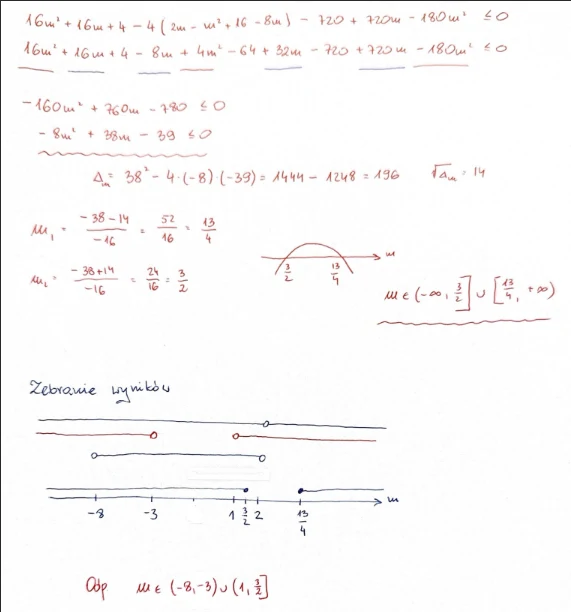 16m² + 16m + 4 - 4(2m - m² + 16 - 8m) - 720 + 720m - 180m² ≤ 0
16m² + 16m + 4 - 8m + 4m² - 64 + 32m - 720 + 720m - 180m² ≤ 0
-160m² + 760m - 780 ≤ 0
-8m² + 38m - 39 ≤ 0
Δm = 38² - 4·(-8)·(-39) = 1444 - 1248 = 196 √Δm = 14
m₁ = (-38-14)/(-16) = 52/16 = 13/4
m₂ = (-38+14)/(-16) = 24/16 = 3/2
m
3/2 13/4
m ∈ (-∞, 3/2] ∪ [13/4, +∞)
Zebranie wyników
m
-8 -3 1 3/2 2 13/4
Odp m ∈ (-8,-3) ∪ (1, 3/2]